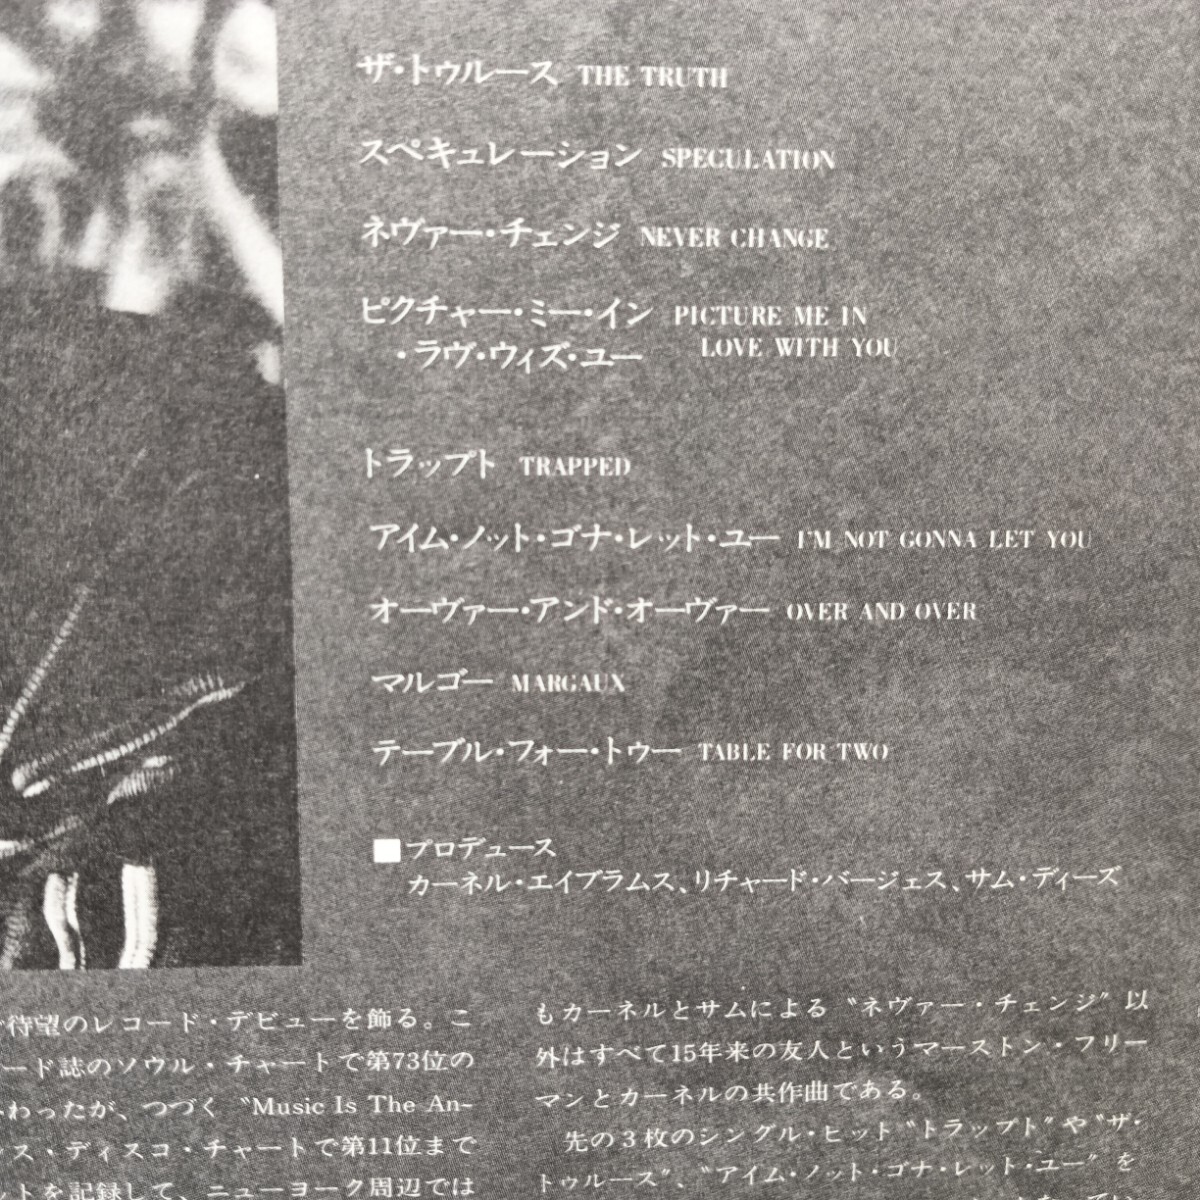 ザ・トゥルース THE TRUTH
スペキュレーション SPECULATION
ネヴァー・チェンジ NEVER CHANGE
ピクチャー・ミー・イン PICTURE ME IN
・ラヴ・ウィズ・ユー LOVE WITH YOU
トラップト TRAPPED
アイム・ノット・ゴナ・レット・ユー I'M NOT GONNA LET YOU
オーヴァー・アンド・オーヴァー OVER AND OVER
マルゴー MARGAUX
テーブル・フォー・トゥー TABLE FOR TWO
■プロデュース
カーネル・エイブラムス、リチャード・バージェス、サム・ディーズ
待望のレコード・デビューを飾る。こ
ード誌のソウル・チャートで第73位の
わったが、つづく〝Music Is The An-
ス・ディスコ・チャートで第11位まで
ットを記録して、ニューヨーク周辺では
もカーネルとサムによる〝ネヴァー・チェンジ〟以
外はすべて15年来の友人というマーストン・フリー
マンとカーネルの共作曲である。
先の3枚のシングル・ヒット〝トラップト〟や〝ザ・
トゥルース〟、〝アイム・ノット・ゴナ・レット・ユー〟を